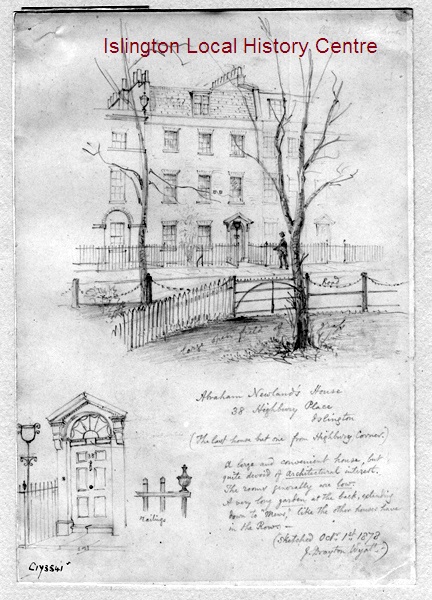 Islington Local History Centre
Abraham Newland's House
38 Highbury Place
Islington
(The last house but one from Highbury Corner.)
A large and convenient house, but
quite devoid of architectural interest.
The rooms generally are low.
A very long garden at the back, extending
down to "Mews," like the other houses have
in the Row. —
(Sketched Octr. 1st. 1872
J. Drayton Wyatt.)
38
railings